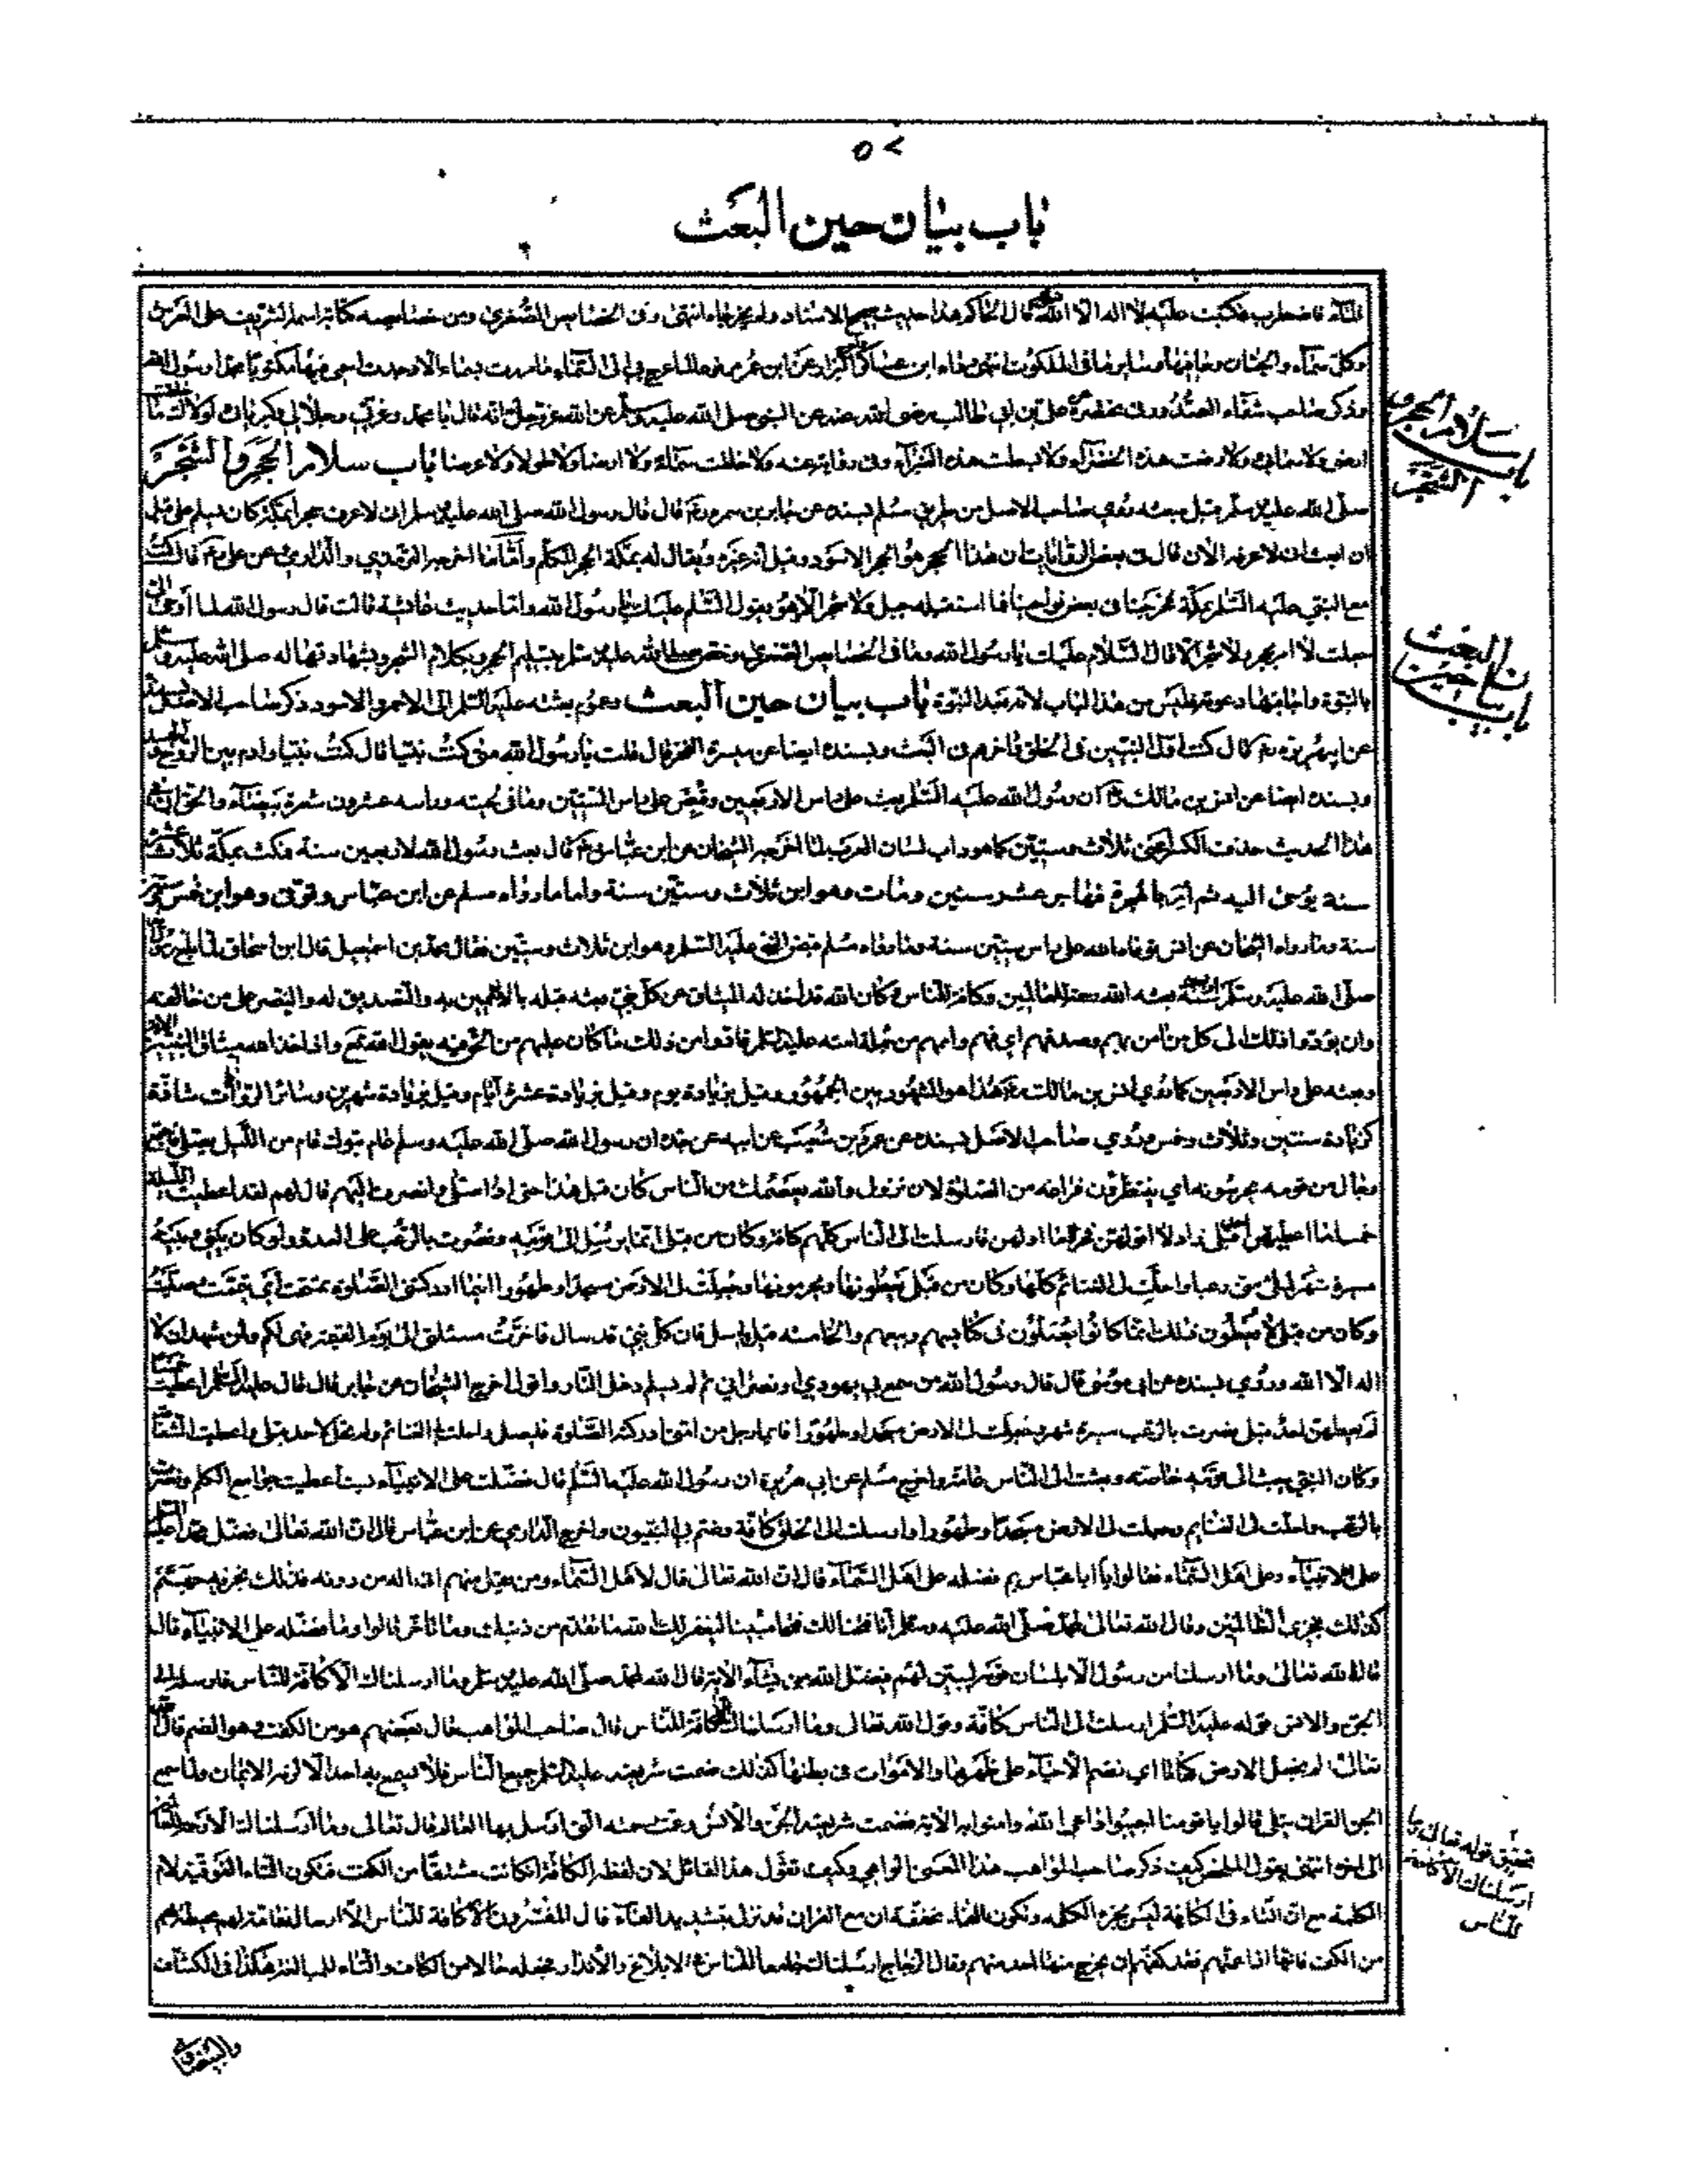 ٥٧
باب بيان حين البعث
الماء فاضطرب فكتبت عليه لا اله الا الله قال الحاكم هذا حديث صحيح الاسناد ولم يخرجاه انتهى وفى الخصايص الصغرى ومن خصايصه كتابة اسمه الشريف على العرش
وكل سماء والجنان وما فيها وسائر ما فى الملكوت انتهى البزار عن ابن عمر لما عرج بى الى السماء ما مررت بسماء الا وجدت اسمى فيها مكتوبا محمد رسول الله
وذكر صاحب شفاء الصدور فى مختصره على بن ابى طالب رضى الله عنه عن النبى صلى الله عليه وسلم عن الله عز وجل انه قال يا محمد وعزتى وجلالى لولاك ما خلقت
ارضى ولا سمائى ولا رفعت هذه الخضراء ولا بسطت هذه الغبراء وفى رواية عنه ولا خلقت سماء ولا ارضا ولا طولا ولا عرضا باب سلام الحجر والشجر
صلى الله عليه وسلم قبل مبعثه روى صاحب الاصل من طريق مسلم بسنده عن جابر بن سمرة قال قال رسول الله صلى الله عليه وسلم ان لاعرف حجرا بمكة كان يسلم على قبل
ان ابعث ان لاعرفه الان قال فى بعض الروايات ان هذا الحجر هو الحجر الاسود وقيل انه غيره ويقال له بمكة الحجر المتكلم واما ما اخرجه الترمذى والدارمى عن على قال كنت
مع النبى عليه السلم بمكة فخرجنا فى بعض نواحيها فما استقبله جبل ولا شجر الا هو يقول السلم عليك يا رسول الله واما حديث عائشة قالت قال رسول الله لما اوحى الى
جعلت لا امر بحجر ولا شجر الا قال السلام عليك يا رسول الله وما فى الخصايص الصغرى وخص صلى الله عليه وسلم بتسليم الحجر وبكلام الشجر وبشهادتهما له صلى الله عليه وسلم
بالنبوة واجابتها دعوته فليس من هذا الباب لانه بعد النبوة باب بيان حين البعث وعموم بعثه عليه السلم الى الاحمر والاسود ذكر صاحب الاصل بسنده
عن ابى هريرة قال كنت اول النبيين فى الخلق واخرهم فى البعث وبسنده ايضا عن ميسرة الفجر قال قلت يا رسول الله متى كنت نبيا قال كنت نبيا وادم بين الروح والجسد
وبسنده ايضا عن انس بن مالك ان رسول الله عليه السلم بعث على راس الاربعين وقبض على راس الستين وما فى لحيته وراسه عشرون شعرة بيضاء
هذا الحديث حذف الكسر اعنى ثلاث وستين كما هو داب لسان العرب لما اخرجه الشيخان من ابن عباس قال بعث رسول الله لاربعين سنة فمكث بمكة ثلاث عشرة
سنة يوحى اليه ثم امر بالهجرة فهاجر عشر سنين ومات وهو ابن ثلاث وستين سنة واما ما رواه مسلم عن ابن عباس وتوفى وهو ابن خمس وستين
سنة وما رواه الشيخان عن انس توفاه الله على راس ستين سنة وما رواه مسلم قبض النبى عليه السلم وهو ابن ثلاث وستين فقال محمد بن اسمعيل قال ابن اسحاق لما بلغ رسول الله
صلى الله عليه وسلم اربعين سنة بعثه الله رحمة للعالمين وكافة للناس وكان الله قد اخذ له الميثاق من كل نبى بعثه قبله بالايمان به والتصديق له والنصر على من خالفه
وان يؤدوا ذلك الى كل من امن بهم وصدقهم فادوا من ذلك ما كان عليهم من الحق فيه يقول الله تع واذ اخذ الله ميثاق النبيين الاية
وبعثه على راس الاربعين كما روى انس بن مالك هذا هو المشهور بين الجمهور وقيل بزيادة يوم وقيل بزيادة عشرة ايام وقيل بزيادة شهرين وسائر الروايات شاذة
كزيادة سنتين وثلاث وخمس وروى صاحب الاصل بسنده عن عمرو بن شعيب عن ابيه عن جده ان رسول الله صلى الله عليه وسلم عام تبوك قام من الليل يصلى فاجتمع
رجال من قومه يحرسونه اى ينتظرون فراغه من الصلوة لان نزول والله يعصمك من الناس كان قبل هذا حتى اذا صلى وانصرف اليهم قال لهم لقد اعطيت الليلة
خمسا ما اعطيهن احد قبلى زاد لا اقولهن فخرا اما اولهن فارسلت الى الناس كلهم كافة وكان من قبلى انما يرسل الى قومه ونصرت بالرعب على العدو ولو كان بينى وبينه
مسيرة شهر لملئ منى رعبا واحلت لى الغنائم كلها وكان من قبلى يعظمونها ويحرمونها وجعلت لى الارض مسجدا وطهورا اينما ادركتنى الصلوة تمسحت اى تيممت وصليت
وكان من قبلى لا يعطون ذلك انما كانوا يصلون فى كنائسهم وبيعهم والخامسة قيل لى سل فان كل نبى قد سال فاخرت مسئلتى الى يوم القيمة فهى لكم ولمن شهد ان لا
اله الا الله وروى بسنده عن ابى موسى قال قال رسول الله من سمع بى يهودى او نصرانى ثم لم يسلم دخل النار واقول اخرج الشيخان عن جابر قال قال عليه السلم اعطيت خمسا
لم يعطهن احد قبلى نصرت بالرعب مسيرة شهر وجعلت لى الارض مسجدا وطهورا فايما رجل من امتى ادركته الصلوة فليصل واحلت لى الغنائم ولم تحل لاحد قبلى واعطيت الشفاعة
وكان النبى يبعث الى قومه خاصة وبعثت الى الناس عامة واخرج مسلم عن ابى هريرة ان رسول الله عليه السلم قال فضلت على الانبياء بست اعطيت جوامع الكلم ونصرت
بالرعب واحلت لى الغنايم وجعلت لى الارض مسجدا وطهورا وارسلت الى الخلق كافة وختم بى النبيون واخرج الدارمى عن ابن عباس قال ان الله تعالى فضل محمدا
على الانبياء وعلى اهل السماء فقالوا يا ابا عباس بم فضله على اهل السماء قال ان الله تعالى قال لاهل السماء ومن يقل منهم انى اله من دونه فذلك نجزيه جهنم
كذلك نجزى الظالمين وقال الله تعالى لمحمد صلى الله عليه وسلم انا فتحنا لك فتحا مبينا ليغفر لك الله ما تقدم من ذنبك وما تاخر قالوا وما فضله على الانبياء قال
قال الله تعالى وما ارسلنا من رسول الا بلسان قومه ليبين لهم فيضل الله من يشاء الاية وقال الله لمحمد صلى الله عليه وسلم وما ارسلناك الا كافة للناس فارسله الى
الجن والانس قوله عليه السلم ارسلت الى الناس كافة وقول الله تعالى وما ارسلناك الا كافة للناس قال صاحب المواهب قال بعضهم هو من الكفت وهو الضم قال الله
تعالى الم نجعل الارض كفاتا اى نضم الاحياء على ظهرها والاموات فى بطنها كذلك ضمت شريعته عليه السلم جميع الناس فلا يسمع به احد الا لزمه الايمان ولما سمع
الجن القران يتلى قالوا يا قومنا اجيبوا داعى الله وامنوا به الاية فضمت شريعته الجن والانس وعمت رحمته التى ارسل بها العالم قال تعالى وما ارسلناك الا رحمة للعالمين
الى اخره انتهى يقول كيف ذكر صاحب المواهب هذا المعنى الواهى وكيف تقول هذا القائل لان لفظ الكافة ان كانت مشتقا من الكفت فتكون التاء الفوقية لام
الكلمة مع ان التاء فى الكافة ليس بجزء الكلمة وتكون الفاء مخففة ان مع القران قد نزل بتشديد الفاء قال المفسرون الا كافة للناس الا ارسالة عامة لهم محيطة بهم
من الكف فانها اذا عمتهم فقد كفتهم ان يخرج منها احد منهم وقال الزجاج ارسلناك جامعا للناس فى الابلاغ والانذار فجعله حالا من الكاف والتاء للمبالغة هكذا فى الكشاف
باب سلام الحجر والشجر
باب بيان حين البعث
تحقيق قوله تعالى وما
ارسلناك الا كافة
للناس